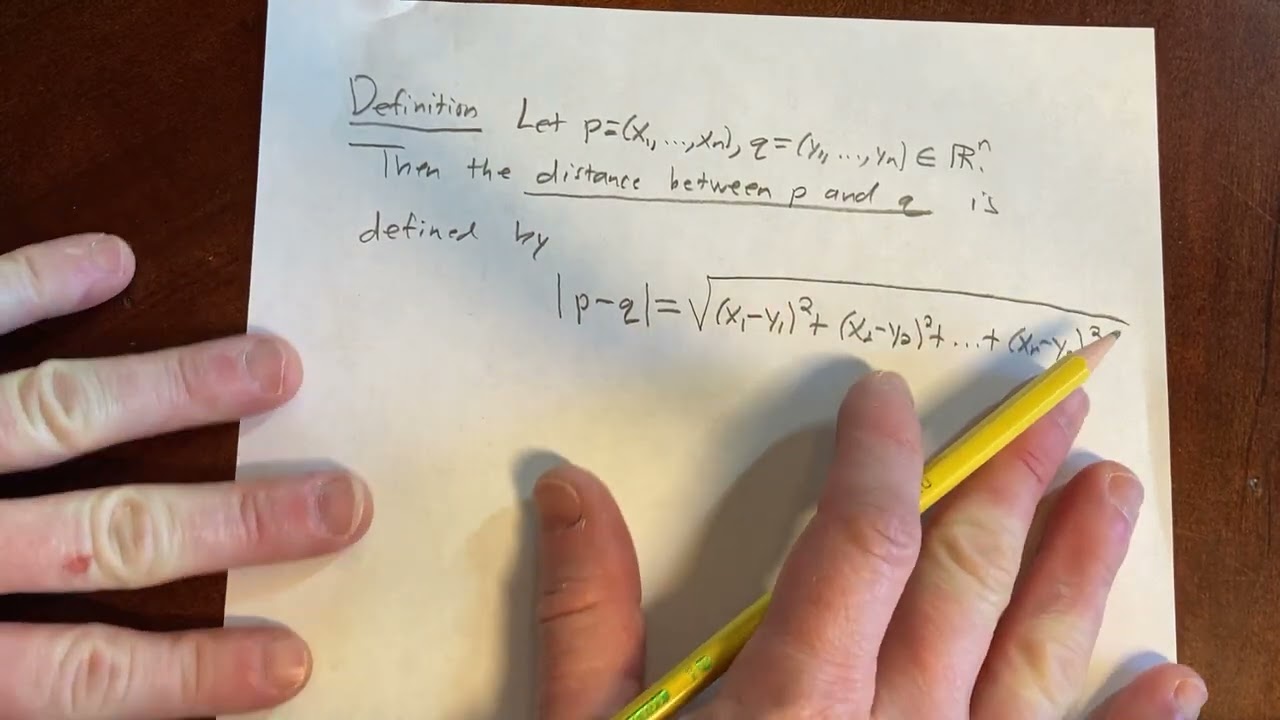 Definition Let p=(x₁,...,xₙ), q=(y₁,...,yₙ) ∈ ℝⁿ.
Then the distance between p and q is
defined by
|p-q|=√(x₁-y₁)²+(x₂-y₂)²+...+(xₙ-yₙ)²